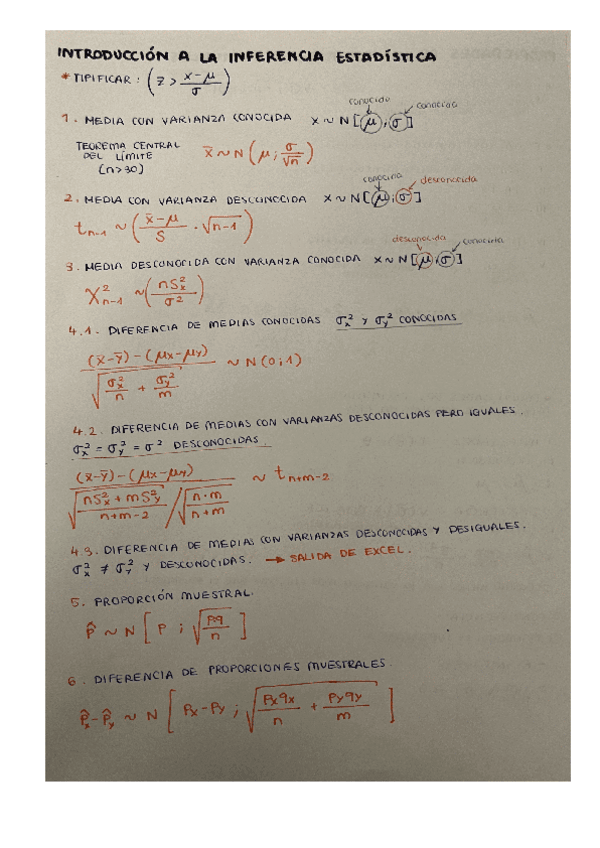 INTRODUCCIÓN A LA INFERENCIA ESTADÍSTICA
* TIPIFICAR: (z > x-μ / σ)
conocida conocida
1. MEDIA CON VARIANZA CONOCIDA X ~ N[μ; σ]
TEOREMA CENTRAL
DEL LÍMITE
(n>30)
x̄ ~ N(μ; σ/√n)
conocida desconocida
2. MEDIA CON VARIANZA DESCONOCIDA X ~ N[μ; σ]
t n-1 ~ (x̄-μ / S · √n-1)
desconocida conocida
3. MEDIA DESCONOCIDA CON VARIANZA CONOCIDA X ~ N[μ; σ]
X² n-1 ~ (nSx² / σ²)
4.1. DIFERENCIA DE MEDIAS CONOCIDAS σx² y σy² CONOCIDAS
(x̄-ȳ)-(μx-μy) / √(σx²/n + σy²/m) ~ N(0;1)
4.2. DIFERENCIA DE MEDIAS CON VARIANZAS DESCONOCIDAS PERO IGUALES.
σx² = σy² = σ² DESCONOCIDAS
(x̄-ȳ)-(μx-μy) / √(nSx²+mSy² / n+m-2) / √(n·m / n+m) ~ t n+m-2
4.3. DIFERENCIA DE MEDIAS CON VARIANZAS DESCONOCIDAS Y DESIGUALES.
σx² ≠ σy² Y DESCONOCIDAS. → SALIDA DE EXCEL.
5. PROPORCIÓN MUESTRAL.
p̂ ~ N[P ; √(p·q / n)]
6. DIFERENCIA DE PROPORCIONES MUESTRALES.
p̂x-p̂y ~ N[Px-Py ; √(Pxqx / n + Pyqy / m)]